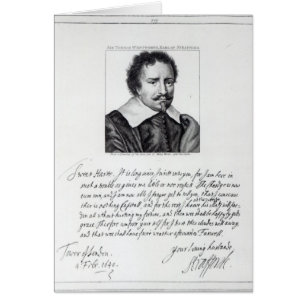 SIR THOMAS WENTWORTH, EARL OF STRAFFORD
Sweet Harte. It is long since I writt unto you, for I am here in
such a trouble as gives me little or noe respitt. The chardge is now
cum inn, and I am now able I prayse god to tell you, that I conceave
ther is nothing Capitall, and for the rest, I know his
all without hurting my fortune, and then we shall be happy by gods
grace. Therfore comfort your self, for I trust thes cloudes will away
and that we shall have faire weather afterwardes Farewell
Your loving husbande
Tower of London
4 Febr. 1640.
Strafforde